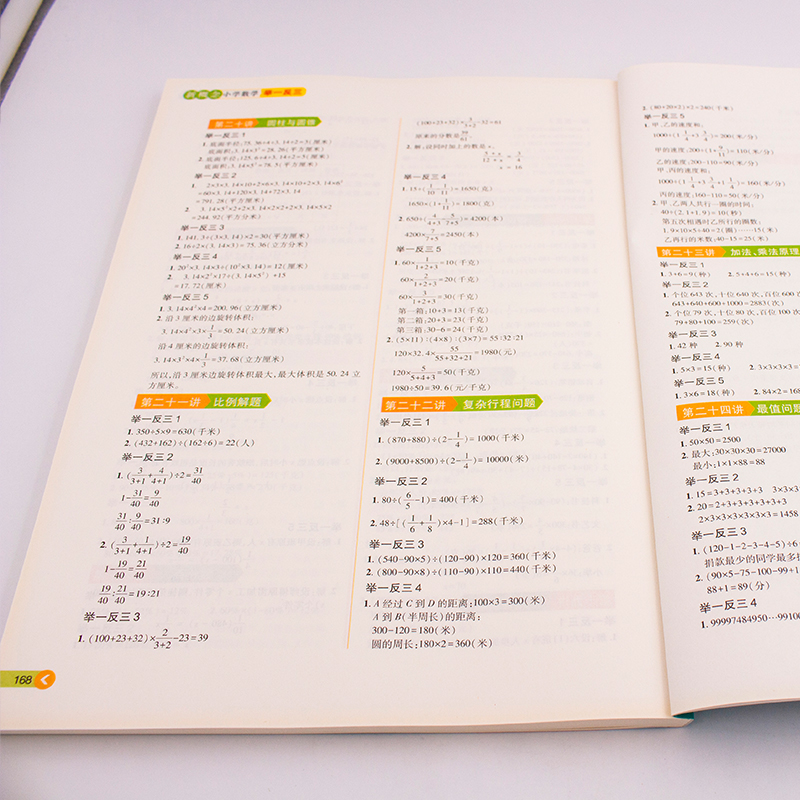 新概念 小学数学 举一反三
第二十讲 圆柱与圆锥
举一反三 1
1. 底面半径:75.36÷4÷3.14÷2=3(厘米)
底面面积:3.14×3²=28.26(平方厘米)
2. 底面半径:125.6÷4÷3.14÷2=5(厘米)
底面面积:3.14×5²=78.5(平方厘米)
举一反三 2
1. 2×3×3.14×10+2×6×3.14×10+2×3.14×6²
=60×3.14+120×3.14+72×3.14
=791.28(平方厘米)
2. 3.14×5²×2+2×3.14×2×2+2×3.14×5×2
=244.92(平方分米)
举一反三 3
1. 141.3÷(3×3.14)×2=30(平方厘米)
2. 16÷2×(3.14×3)=75.36(立方分米)
举一反三 4
1. 20²×3.14×3÷(10²×3.14)=12(厘米)
2. 3.14×2²×17÷(3.14×5²)+15
=17.72(厘米)
举一反三 5
1. 3.14×4²×4=200.96(立方厘米)
2. 沿 3 厘米的边旋转体积:
3.14×4²×3×1/3=50.24(立方厘米)
沿 4 厘米的边旋转体积:
3.14×3²×4×1/3=37.68(立方厘米)
所以,沿 3 厘米边旋转体积最大,最大体积是 50.24 立
方厘米。
第二十一讲 比例解题
举一反三 1
1. 350÷5×9=630(千米)
2. (432+162)÷(162÷6)=22(人)
举一反三 2
1. (3/(3+1)+4/(4+1))÷2=31/40
1-31/40=9/40
31/40:9/40=31:9
2. (3/(3+1)+1/(4+1))÷2=19/40
1-19/40=21/40
19/40:21/40=19:21
举一反三 3
1. (100+23+32)×2/(3+2)-23=39
168
(100+23+32)×3/(3+2)-32=61
原来的分数是39/61
2. 解:设同时加上的数是 x。
=3/4
x = 16
举一反三 4
1. 15÷(1/10-1/11)=1650(克)
1650×(1+1/10)=1800(克)
2. 650÷(4/(4+3)-5/(7+5))=4200(本)
4200×7/(7+5)=2450(本)
举一反三 5
1. 60×1/(1+2+3)=10(千克)
60×2/(1+2+3)=20(千克)
60×3/(1+2+3)=30(千克)
第一箱:10+3=13(千克)
第二箱:20+3=23(千克)
第三箱:30-6=24(千克)
2. (5×11):(4×8):(3×7)=55:32:21
120×32.4×55/(55+32+21)=1980(元)
120×5/(5+4+3)=50(千克)
1980÷50=39.6(元/千克)
第二十二讲 复杂行程问题
举一反三 1
1. (870+880)÷(2-1/4)=1000(千米)
2. (9000+8500)÷(2-1/4)=10000(米)
举一反三 2
1. 80÷(6/5-1)=400(千米)
2. 48÷[(1/6+1/8)×4-1]=288(千米)
举一反三 3
1. (540-90×5)÷(120-90)×120=360(千米)
2. (800-90×8)÷(110-90)×110=440(千米)
举一反三 4
1. A 经过 C 到 D 的距离:100×3=300(米)
A 到 B(半周长)的距离:
300-120=180(米)
圆的周长:180×2=360(米)
2. (80+20×2)×2=240(千米)
举一反三 5
1. 甲、乙的速度和:
甲的速度:
乙的速度:200-110=90(米/分)
甲、丙的速度和:
丙的速度:160-110=50(米/分)
2. 甲、乙两人共行一圈的时间:
40÷(2.1+1.9)=10(秒)
第五次相遇时乙所行的圈数:
1.9×10×5÷40=2(圈)……15(米)
乙再行的米数:40-15=25(米)
第二十三讲 加法、乘法原理
举一反三 1
1. 3+6=9(种) 2. 5+4+6=15(种)
举一反三 2
1. 个位 643 次,十位 640 次,百位 600
643+640+600+1000=2883(次)
2. 个位 79 次,十位 80 次,百位 100
79+80+100=259(次)
举一反三 3
1. 42 种 2. 90 种
举一反三 4
1. 5×3=15(种) 2. 3×3×3×3=
举一反三 5
1. 3×6=18(种) 2. 84×2=168
第二十四讲 最值问题
举一反三 1
1. 50×50=2500
2. 最大:30×30×30=27000
最小:1×1×88=88
举一反三 2
1. 15=3+3+3+3+3 3×3×3×
2. 20=2+3+3+3+3+3+3
2×3×3×3×3×3×3=1458
举一反三 3
1. (120-1-2-3-4-5)÷6=
捐款最少的同学最多
2. (90×5-75-100-99+1
88+1=89(分)
举一反三 4
1. 99997484950…99100